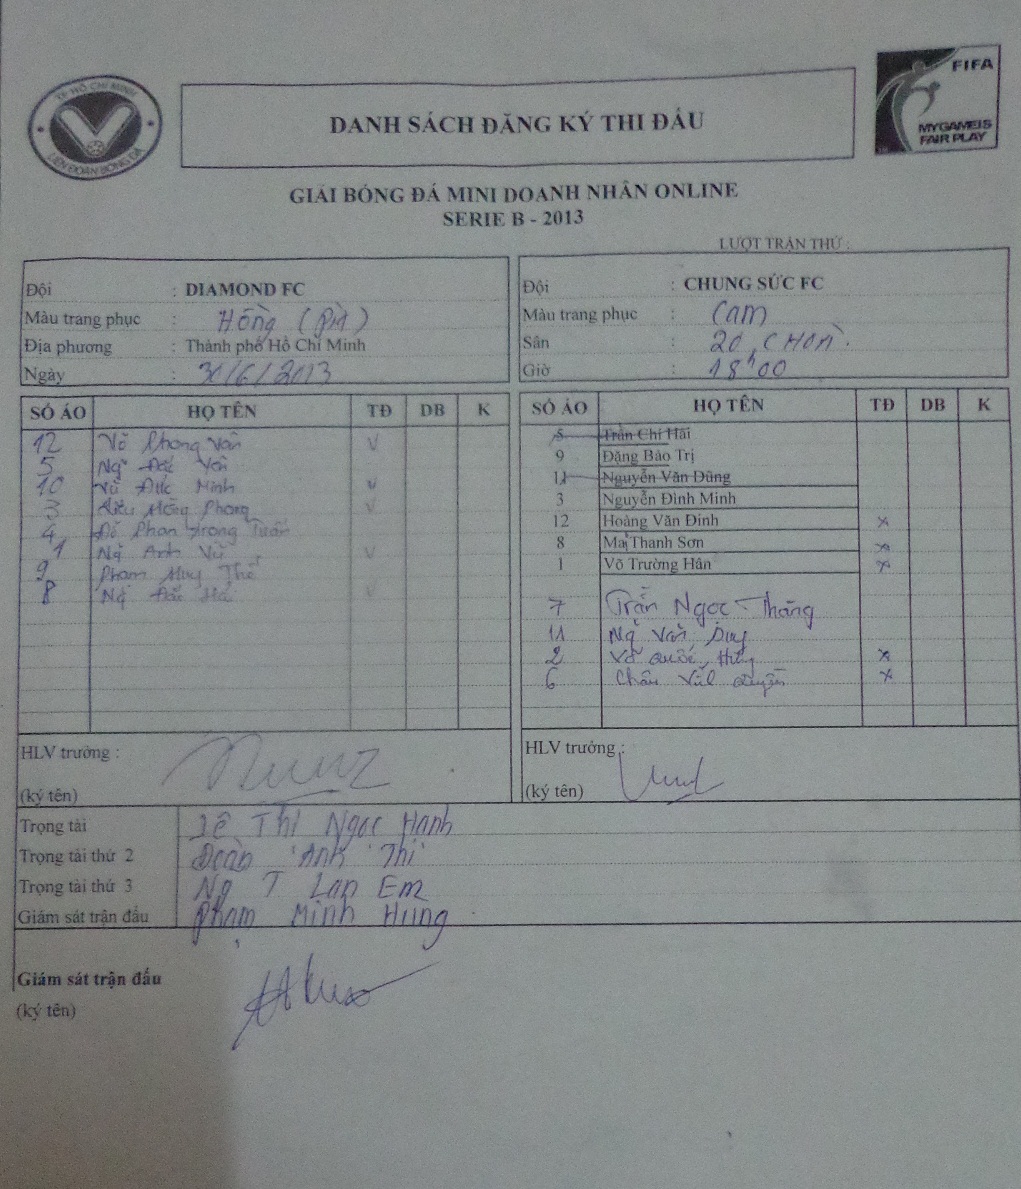 TP HỒ CHÍ MINH
LIÊN ĐOÀN BÓNG ĐÁ
DANH SÁCH ĐĂNG KÝ THI ĐẤU
FIFA
MY GAME IS
FAIR PLAY
GIẢI BÓNG ĐÁ MINI DOANH NHÂN ONLINE
SERIE B - 2013
LƯỢT TRẬN THỨ :
Đội : DIAMOND FC
Màu trang phục : Hồng
Địa phương : Thành phố Hồ Chí Minh
Ngày : 30/6/2013
Đội : CHUNG SỨC FC
Màu trang phục : Cam
Sân : 20,
Giờ : 18h00
SỐ ÁO HỌ TÊN TĐ DB K
12 Võ Phong Vân V
5 Ng Đắc
10 Vũ Đức Minh V
3 Hồng Phong V
4 Đỗ Phan Trọng Tuấn
1 Ng Anh Vũ V
9 Phạm Huy Thế
8 Ng Đắc V
SỐ ÁO HỌ TÊN TĐ DB K
5 Trần Chí Hải
9 Đặng Bảo Trị
11 Nguyễn Văn Dũng
3 Nguyễn Đình Minh
12 Hoàng Văn Đinh x
8 Mai Thanh Sơn x
1 Võ Trường Hân x
7 Trần Ngọc Thăng
11 Ng Văn Duy
2 Võ Quốc Hưng x
6 Châu x
HLV trưởng :
(ký tên)
HLV trưởng :
(ký tên)
Trọng tài Lê Thị Ngọc Hạnh
Trọng tài thứ 2 Đoàn Anh Thi
Trọng tài thứ 3 Ng T Lan Em
Giám sát trận đấu Phạm Minh Hùng
Giám sát trận đấu
(ký tên)